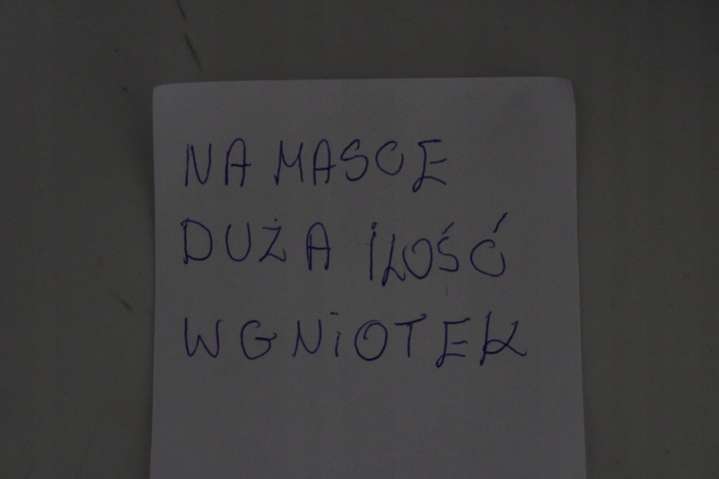 NA MASCE
DUŻA ILOŚĆ
WGNIOTEK